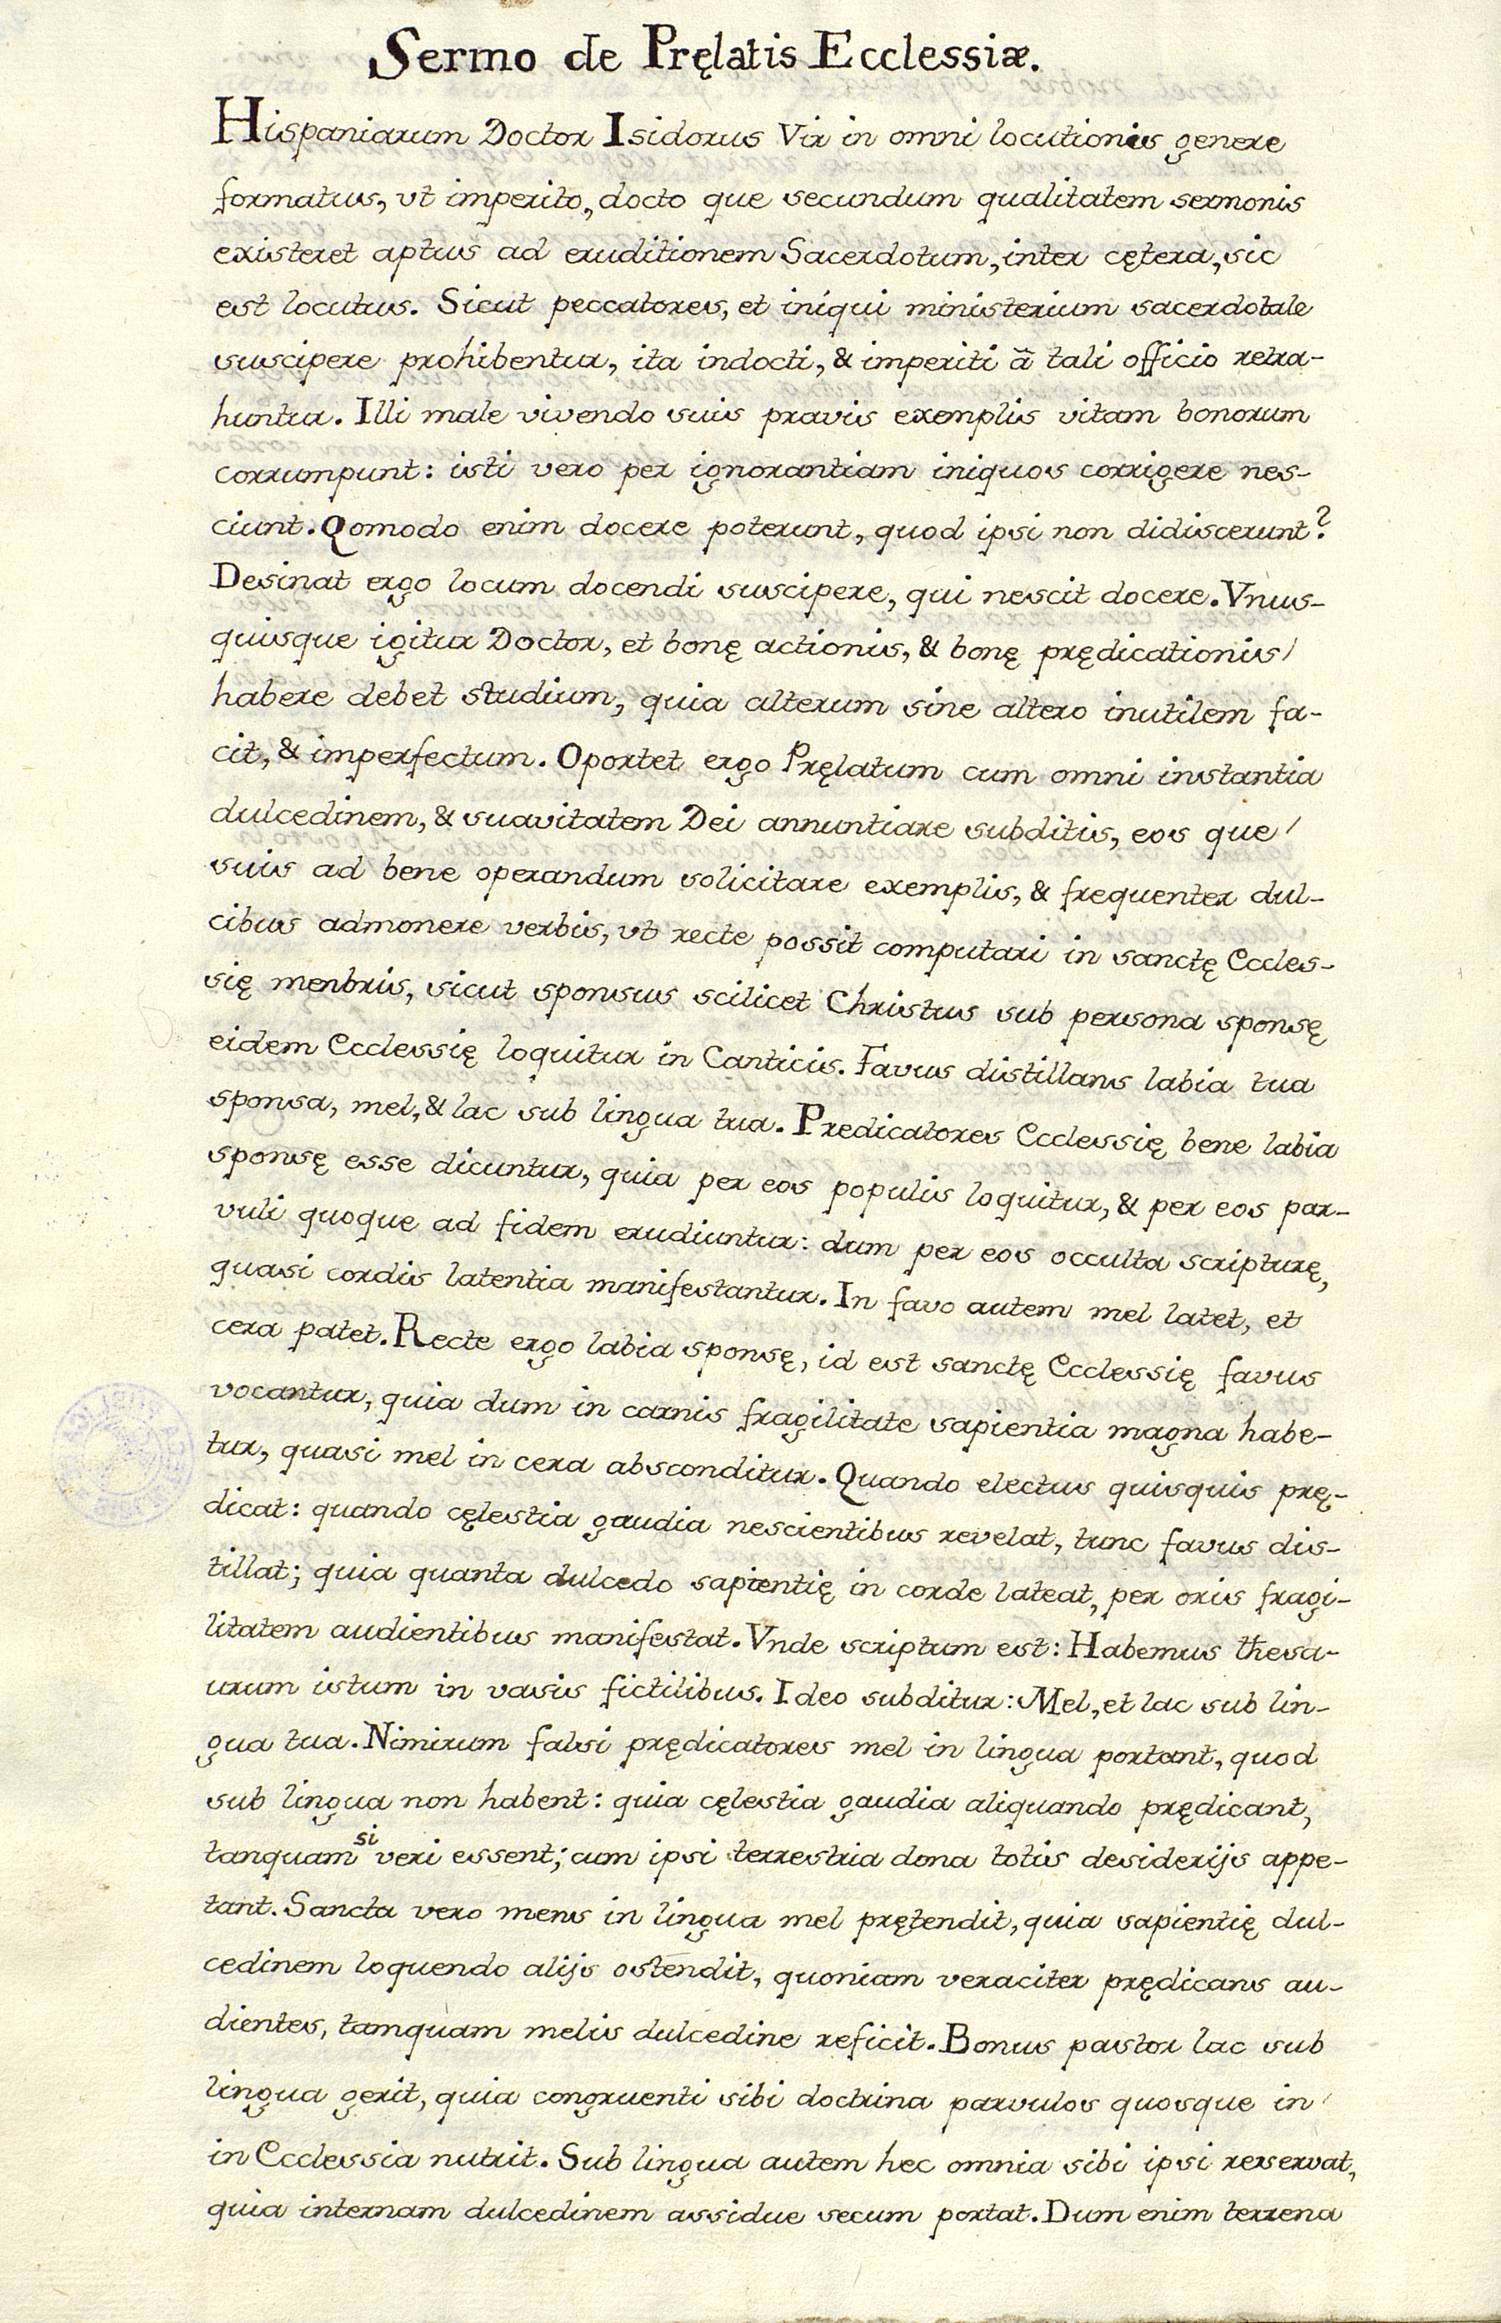 Sermo de Pręlatis Ecclessiæ.
Hispaniarum Doctor Isidorus Vir in omni locutionis genere
formatus, vt imperito, docto que secundum qualitatem sermonis
existeret aptus ad eruditionem Sacerdotum, inter cętera, sic
est locutus. Sicut peccatores, et iniqui ministerium sacerdotale
suscipere prohibentur, ita indocti, & imperiti ã tali officio retra-
huntur. Illi male vivendo suis pravis exemplis vitam bonorum
corrumpunt: isti vero per ignorantiam iniquos corrigere nes-
ciunt. Qomodo enim docere poterunt, quod ipsi non didiscerunt?
Desinat ergo locum docendi suscipere, qui nescit docere. Vnus-
quisque igitur Doctor, et bonę actionis, & bonę prędicationis/
habere debet studium, quia alterum sine altero inutilem fa-
cit, & imperfectum. Oportet ergo Pręlatum cum omni instantia
dulcedinem, & suavitatem Dei annuntiare subditis, eos que/
suis ad bene operandum solicitare exemplis, & frequenter dul-
cibus admonere verbis, vt recte possit computari in sanctę Eccles-
się menbris, sicut sponsus scilicet Christus sub persona sponsę
eidem Ecclessię loquitur in Canticis. Favus distillans labia tua
sponsa, mel, & lac sub lingua tua. Predicatores Ecclessię bene labia
sponsę esse dicuntur, quia per eos populis loquitur, & per eos par-
vuli quoque ad fidem erudiuntur: dum per eos occulta scripturę,
quasi cordis latentia manifestantur. In favo autem mel latet, et
cera patet. Recte ergo labia sponsę, id est sanctę Ecclessię favus
vocantur, quia dum in carnis fragilitate sapientia magna habe-
tur, quasi mel in cera absconditur. Quando electus quisquis prę-
dicat: quando cęlestia gaudia nescientibus revelat, tunc favus dis-
tillat; quia quanta dulcedo sapientię in corde lateat, per oris fragi-
litatem audientibus manifestat. Vnde scriptum est: Habemus thesa-
urum istum in vasis fictilibus. Ideo subditur: Mel, et lac sub lin-
gua tua. Nimirum falsi prędicatores mel in lingua portant, quod
sub lingua non habent: quia cęlestia gaudia aliquando prędicant,
tanquam si veri essent; cum ipsi terrestria dona totis desiderijs appe-
tant. Sancta vero mens in lingua mel prętendit, quia sapientię dul-
cedinem loquendo alijs ostendit, quoniam veraciter prędicans au-
dientes, tamquam melis dulcedine reficit. Bonus pastor lac sub
lingua gerit, quia congruenti sibi doctrina parvulos quosque in/
in Ecclessia nutrit. Sub lingua autem hec omnia sibi ipsi reservat,
quia internam dulcedinem assidue secum portat. Dum enim terrena